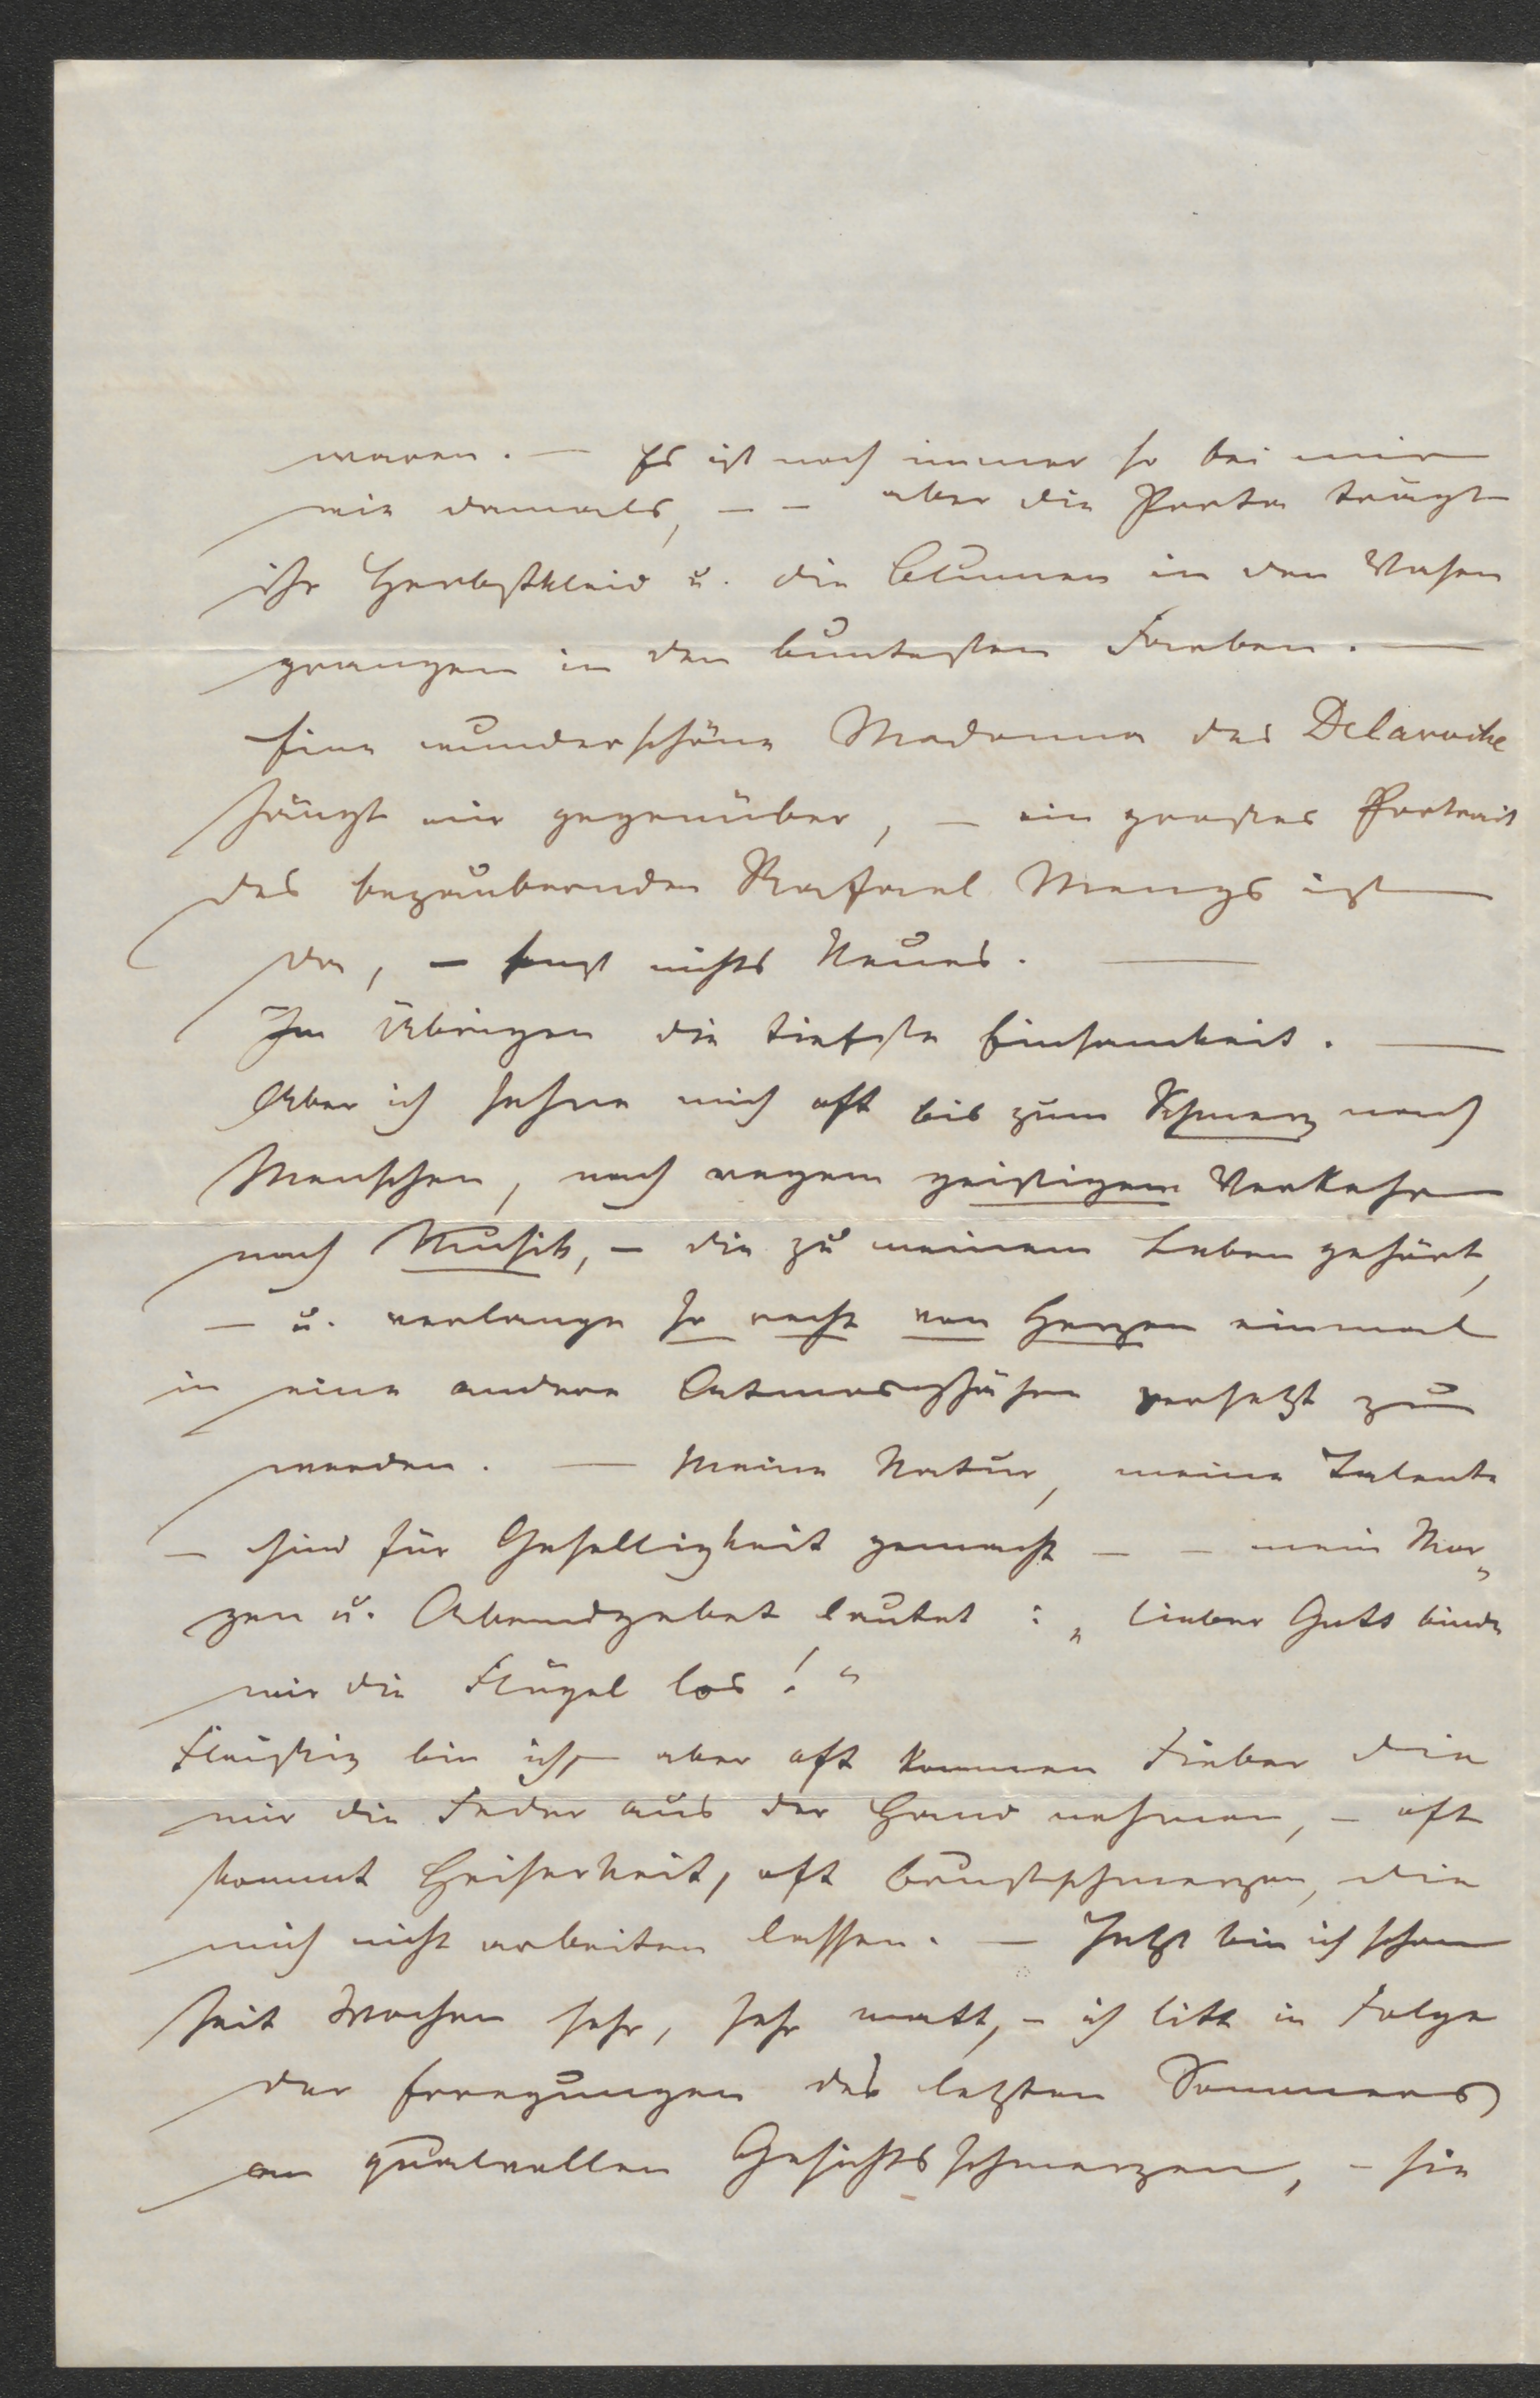 waren. — Es ist noch immer so bei mir
wie damals, — — aber die Porta trägt
ihr Herbstkleid u. die Blumen in den Vasen
prangen in den buntesten Farben. —
Eine wunderschöne Madonna des Delaroche
hängt mir gegenüber, — ein großes Portrait
des bezaubernden Rafael Mengs ist
da, — sonst nichts Neues. —
Im Übrigen die tiefste Einsamkeit. —
Aber ich sehne mich oft bis zum Schmerz nach
Menschen, nach regem geistigem Verkehr
nach Musik, — die zu meinem Leben gehört,
— u. verlange so recht von Herzen einmal
in eine andere Atmosphäre versetzt zu
werden. — Meine Natur, meine Talente
— sind für Geselligkeit gemacht — — mein Mor„
gen u. Abendgebet lautet : „lieber Gott binde
mir die Flügel los!“
Fleißig bin ich, — aber oft kommen Fieber die
mir die Feder aus der Hand nehmen, — oft
kommt Heiserkeit, oft Brustschmerzen, die
mich nicht arbeiten lassen. — Jetzt bin ich schon
seit Wochen sehr, sehr matt, — ich litt in Folge
der Erregungen des letzten Sommers
an qualvollen Gesichtsschmerzen, — sie